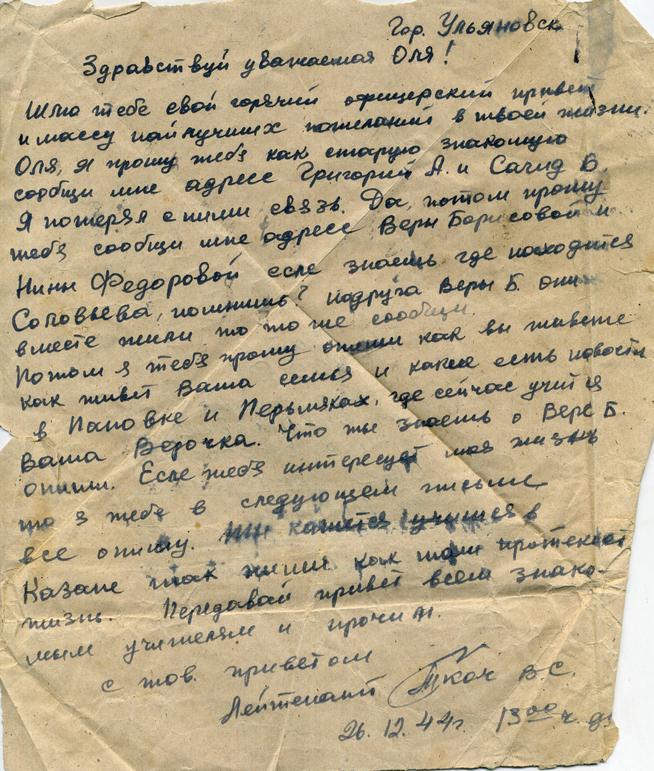 Гор. Ульяновск
Здравствуй уважаемая Оля!
Шлю тебе свой горячий офицерский привет
и массу найлучших пожеланий в твоей жизни.
Оля, я прошу тебя как старую знакомую
сообщи мне адресс Григорий А. и Сагид В.
Я потерял с ними связь. Да, потом прошу
тебя сообщи мне адресс Веры Борисовой и
Нины Федоровой есле знаешь где находится
Соловьева, помнишь? подруга Веры Б. они
вместе жили то то же сообщи.
Потом я тебя прошу опиши как вы живете
как живёт Ваша семья и какие есть новости
в Пановке и Пермяках, где сейчас учится
Ваша Верочка. Что ты знаешь о Вере Б.
опиши. Есле тебя интересует моя жизнь
то я тебе в следующем письме
все опишу. Ты кажется учишся в
Казане так пиши как там протекает
жизнь. Передавай привет всем знако-
мым учителям и прочим.
с тов. приветом
Лейтенант Ткач В.С.
26.12.44г. 13⁰⁰ ч.